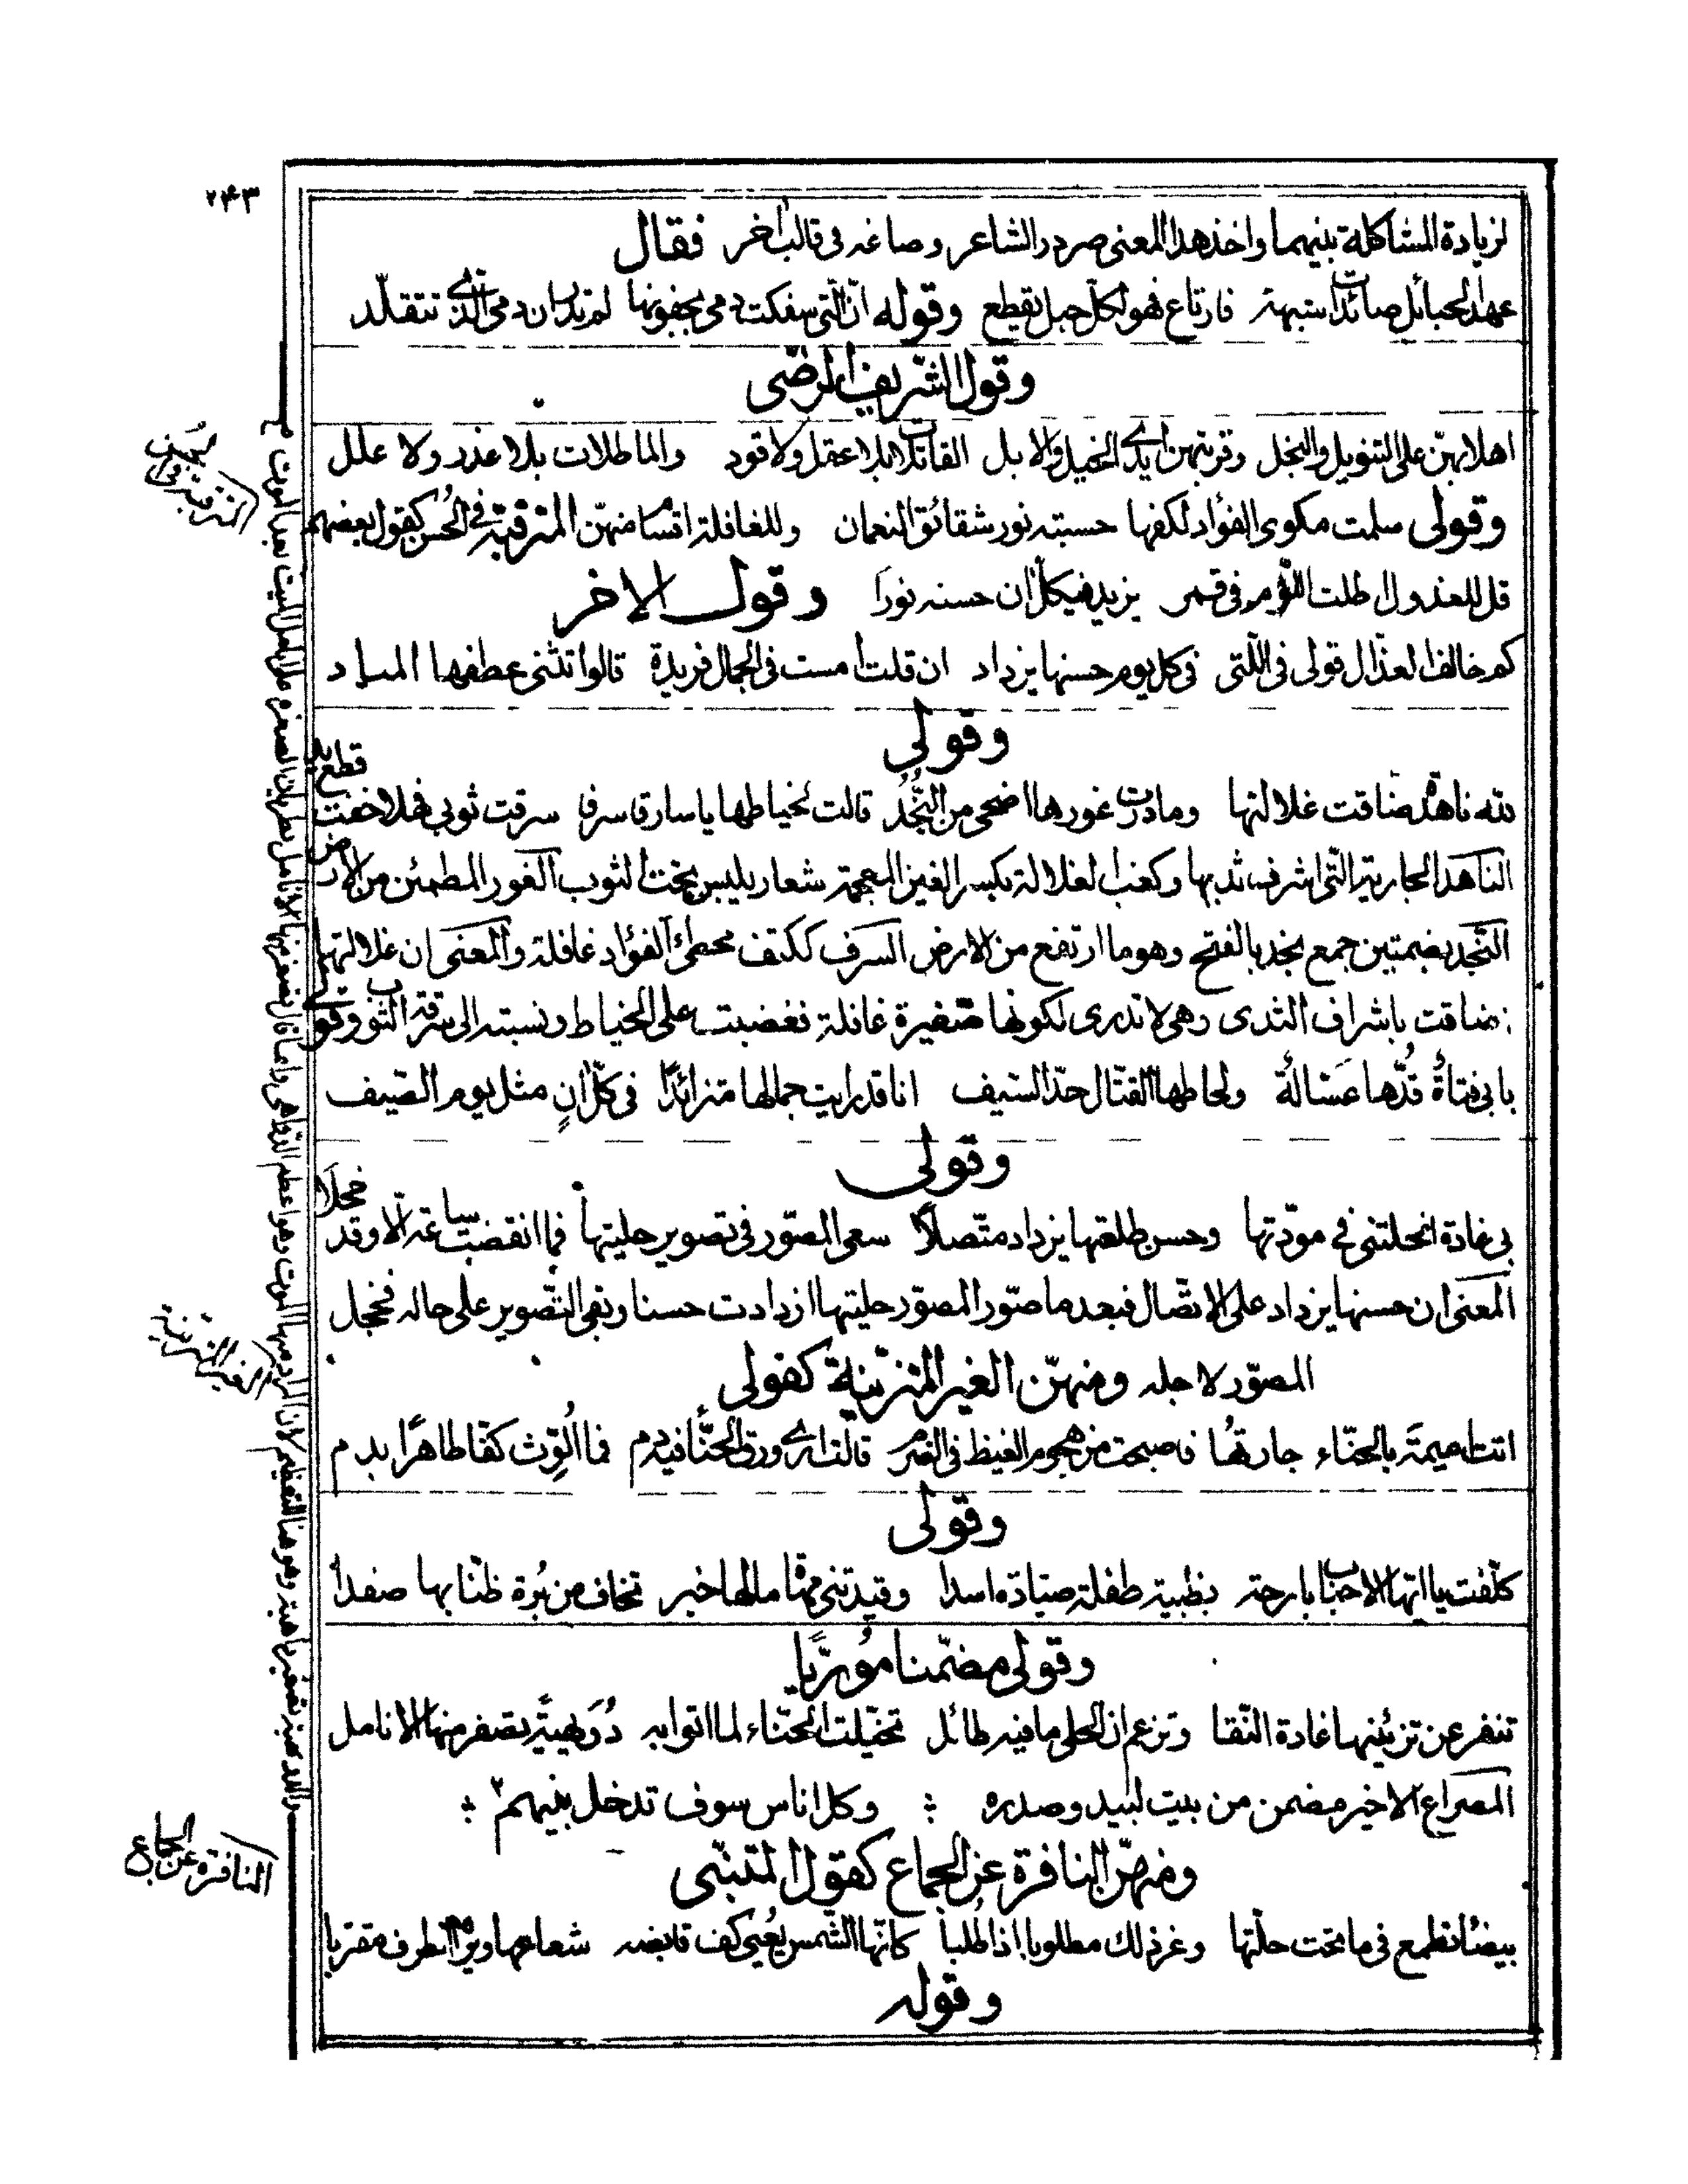 ٢٤٣
لزيادة المشاكلة بينهما واخذ هذا المعنى صردر الشاعر وصاغه فى قالب اخر فقال
عهد الحبائل صائدات شبهه فارتاع فهو لكل حبل يقطع وقوله انّ التى سفكت دمى بجفونها لم تدر ان دمى الذى تتقلّد
وقول الشريف الرضى
اهلا بهنّ على التنويل والبخل وقربتهن ايدى الخيل والابل القاتلات بلا عقل ولا قود والماطلات بلا عذر ولا علل
وقولى سلمت مكوى الفؤاد لكفها حسبته نور شقائق النعمان وللغافلة اقسام منهنّ المترقية فى الحسن كقول بعضهم
قل للعذول اطلت اللؤم فى قمر يزيد فى كل ان حسنه نورا وقول الاخر
كم خالف العذّال قولى فى الّتى فى كل يوم حسنها يزداد ان قلت امست فى الجمال فريدة قالوا تثنى عطفها المياد
وقولى
لله ناهدة ضاقت غلالتها وما درت غورها اضحى من النُّجُد قالت لخياطها يا سارقا سرفا سرقت ثوبى فهلا خفت قطع يد
الناهد الجارية التى اشرف ثديها وكعب الغلالة بكسر الغين المعجمة شعار يلبس تحت الثوب الغور المطمئن من الارض
النجد بضمتين جمع نجد بالفتح وهو ما ارتفع من الارض السرف ككتف مخطئ الفؤاد غافلة والمعنى ان غلالتها
ضاقت باشراف الثدى وهى لا تدرى لكونها صغيرة غافلة فغضبت على الخياط ونسبته الى سرقة الثوب وقولى
بابى فتاةٌ قُدّها عَسّالةٌ ولحاظها القتّال حدّ السّيف انا قد رايت جمالها متزائدًا فى كلّ انٍ مثل يوم الصّيف
وقولى
بى غادة انحلتنى فى مودّتها وحسن طلعتها يزداد متّصلاً سعى المصّور فى تصوير حليتها فما انقضت ساعة الّا وقد خجلَا
المعنى ان حسنها يزداد على الاتّصال فبعد ما صوّر المصوّر حليتها ازدادت حسنا وبقى التّصوير على حاله فخجل
المصوّر لاجله ومنهنّ الغير المتزيّنة كقولى
اتت اميمة بالحنّاء جارتها فاصبحت من هجوم الغيظ فى الضرم قالت ارى ورق الحنّاء فيه دم فما اُلوِّث كفّا طاهرًا بدم
وقولى
كلّفت يا ايّها الاحباب بارحة بظبية طفلة صيّادة اسدا وقيدتنى مهاة ما لها خبر تخاف من بُرة ظنّا بها صفدا
وقولى مضمّنا مُورّيا
تنفر عن تزيّنها غادة النّقا وتزعم ان الحلى ما فيه طائل تخيّلت الحنّاء لما اتوا به دُوَيهيّة تصفر منها الانامل
المصراع الاخير مضمن من بيت لبيد وصدره وكل اناس سوف تدخل بينهم
ومنهنّ النافرة عن الجماع كقول المتنبّى
بيضاء تطمع فى ما تحت حلّتها وعز ذلك مطلوبا اذا طلبا كانّها الشّمس يُعيى كف قابضه شعاعها ويراه الطرف مقتربا
وقوله
المترقية فى الحسن
الغير المتزينة
النافرة عن الجماع